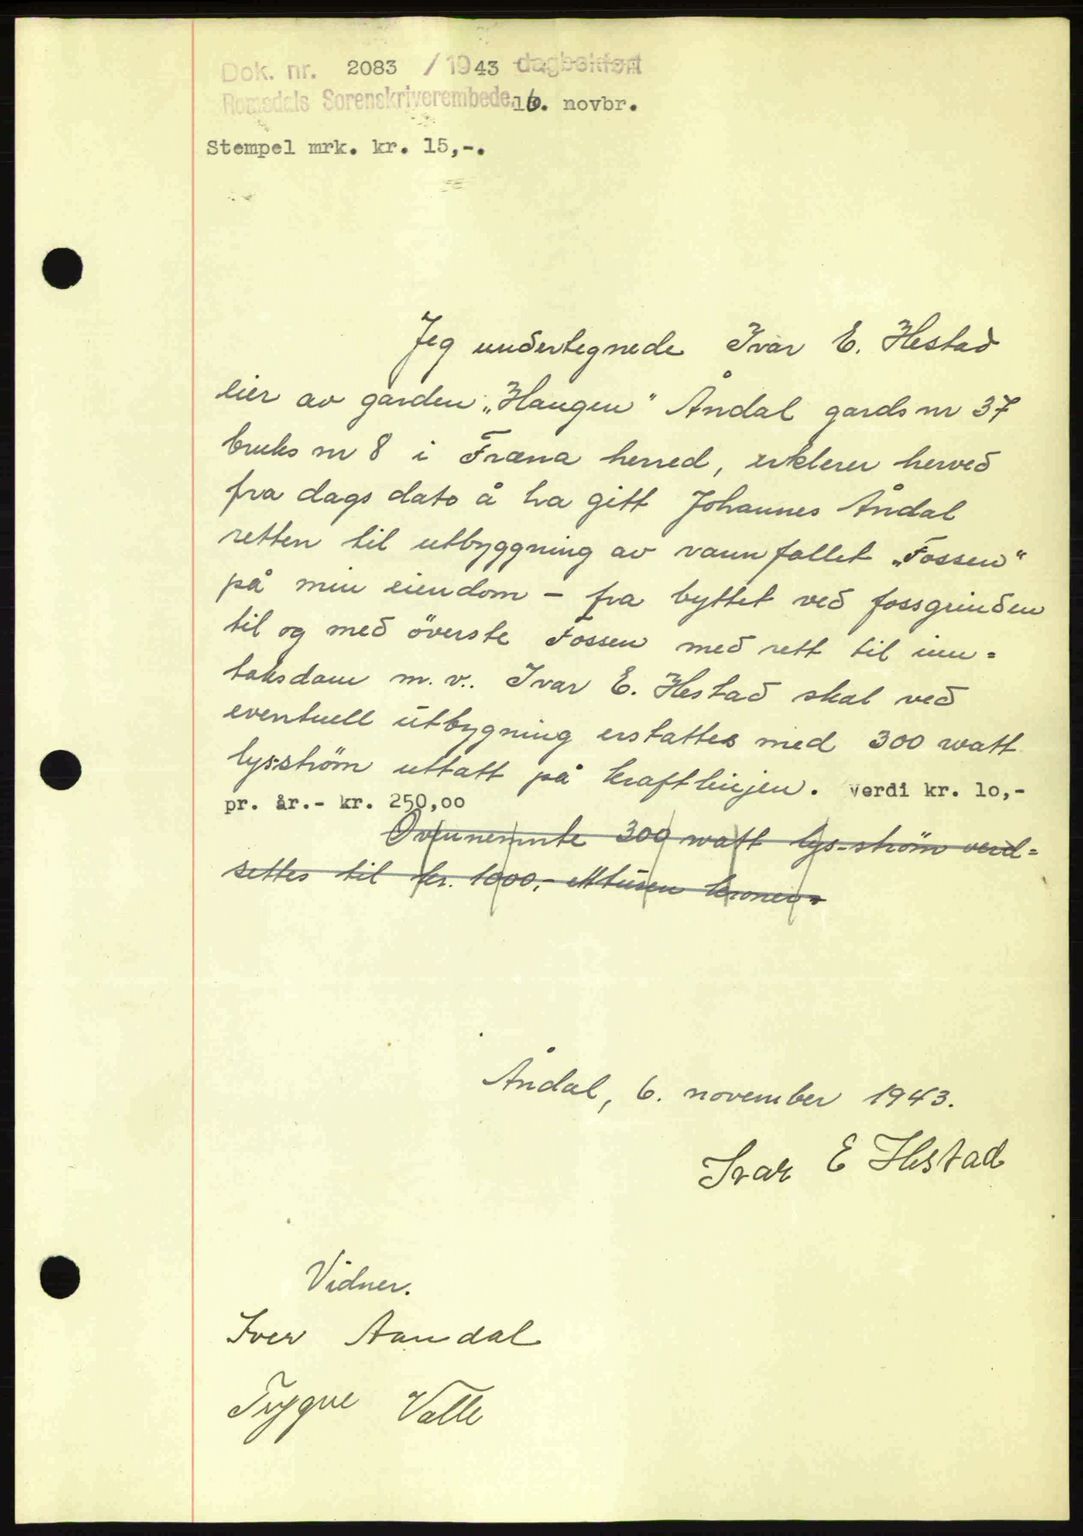 Dok. nr. 2083 / 1943 dagbokført
Romsdals Sorenskriverembede 16. novbr.
Stempel mrk. kr. 15,-.
Jeg undertegnede Ivar E. Hestad
eier av garden „Haugen" Åndal gards nr 37
bruks nr 8 i Fræna herred, erklerer herved
fra dags dato å ha gitt Johannes Åndal
retten til utbyggning av vannfallet „Fossen"
på min eiendom - fra byttet ved fossgrinden
til og med överste Fossen med rett til inn=
taksdam m.v.. Ivar E. Hestad skal ved
eventuell utbygning erstattes med 300 watt
lys-ström uttatt på kraftlinjen. verdi kr. 10,-
pr. år.- kr. 250,00
Ovennemnte 300 watt lys-ström verd=
settes til kr. 1000,- ettusen kroner.
Åndal, 6. november 1943.
Ivar E Hestad
Vidner.
Iver Aandal
Trygve Valle